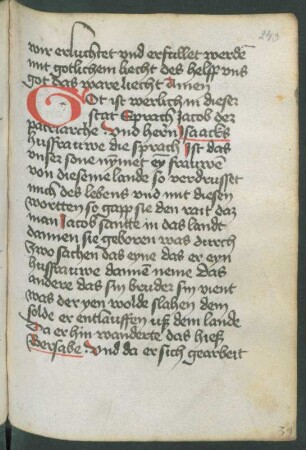 243
wir erluchtet vnd erfullet werdē
mit gotlichem liecht des helff vns
got das ware liecht Amen
Got ist werlich in dieser
stat Sprach Jacob der
Patriarche · Vnd herrn Isaacks
hussfrauwe die sprach Ist das
vnser sone nymet ey frauwen
von dieseme lande so verdrusset
mich des lebens vnd mit diesen
wortten so gapp sie den rait daz
man Jacob santte in das land
dannen sie geboren was durch
zwo sachen das eyne das er eyn
hussfrauwe dannen neme das
andere das sin bruder sin vient
was der yen wolde slahen dem
solde er entlauffen uß dem lande
Da er hin wanderte das hieß
Bersabe · vnd da er sich gearbeit